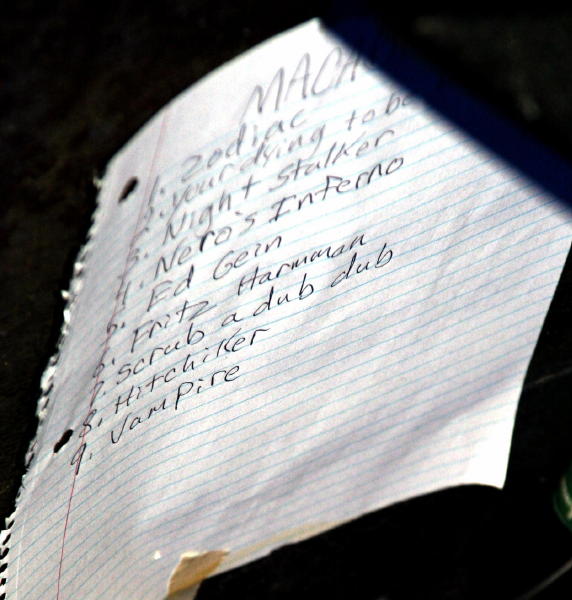 MACA
1. Zodiac
2. your dying to be
3. Night Stalker
4. Nero's Inferno
5. Ed Gein
6. Fritz Harmman
7. Scrub a dub dub
8. Hitchiker
9. Vampire